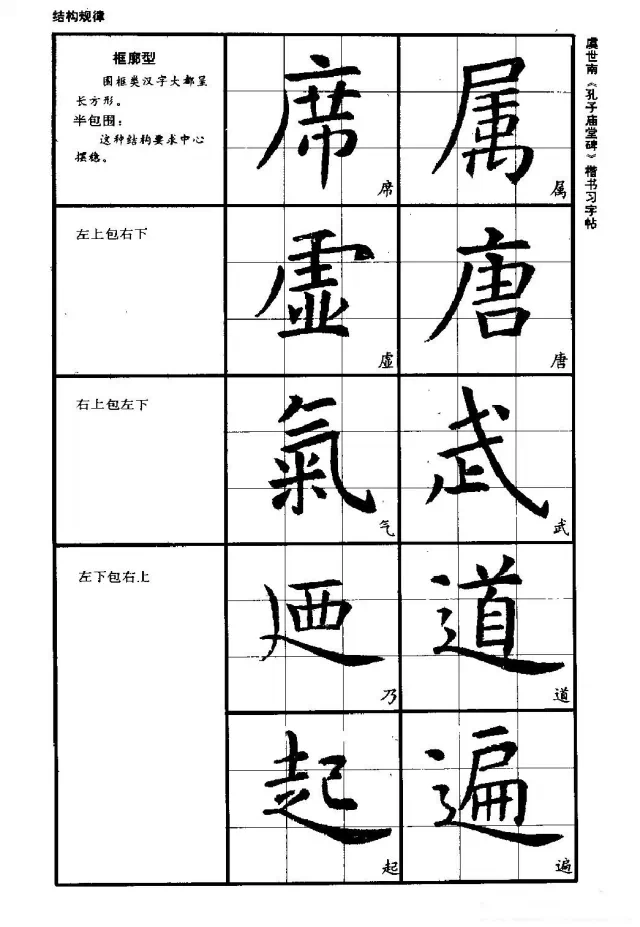 结构规律
框廓型
围框类汉字大都呈
长方形。
半包围：
这种结构要求中心
摆稳。
席
席
属
属
左上包右下
虚
虚
唐
唐
右上包左下
氣
气
武
武
左下包右上
廼
乃
道
道
起
起
遍
遍
虞世南《孔子庙堂碑》楷书习字帖